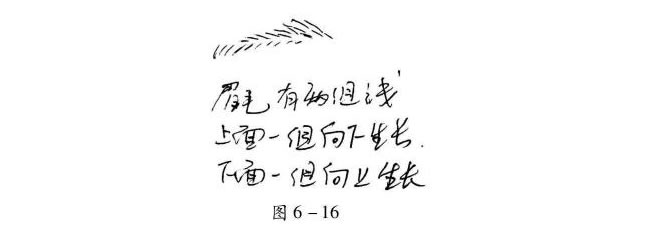 眉毛有两组线
上面一组向下生长.
下面一组向上生长
图6-16